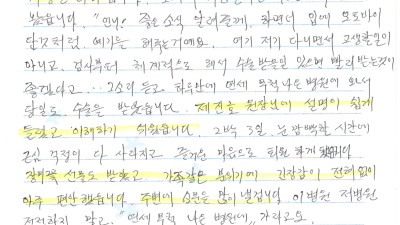 봤습니다. "언니! 좋은 소식 알려줄께. 하면서 입에 모토바이
단것처럼 얘기를 해주는거예요. 여기 저기 다니면서 고생할일이
아니고, 검사부터 체계적으로 해서 수술받을일 있으면 빨리받는것이
좋겠다고... 그소리 듣고 하루만에 연세 무척나은 병원에 와서
당일로 수술을 받았습니다. 제진호 원장님에 설명이 쉽게
들렸고 이해하기 쉬웠습니다. 2박 3일 눈 깜빡할 시간에
근심 걱정이 다 사라지고 즐거운 마음으로 퇴원 하게 됐습니다
장미꽃 선물도 받았고 가족같은 분위기에 긴장감이 전혀없이
아주 편안 했습니다. 주변에 소문을 많이 낼겁니다. 이병원 저병원
걱정하지 말고. "연세 무척 나은 병원에" 가라고요.